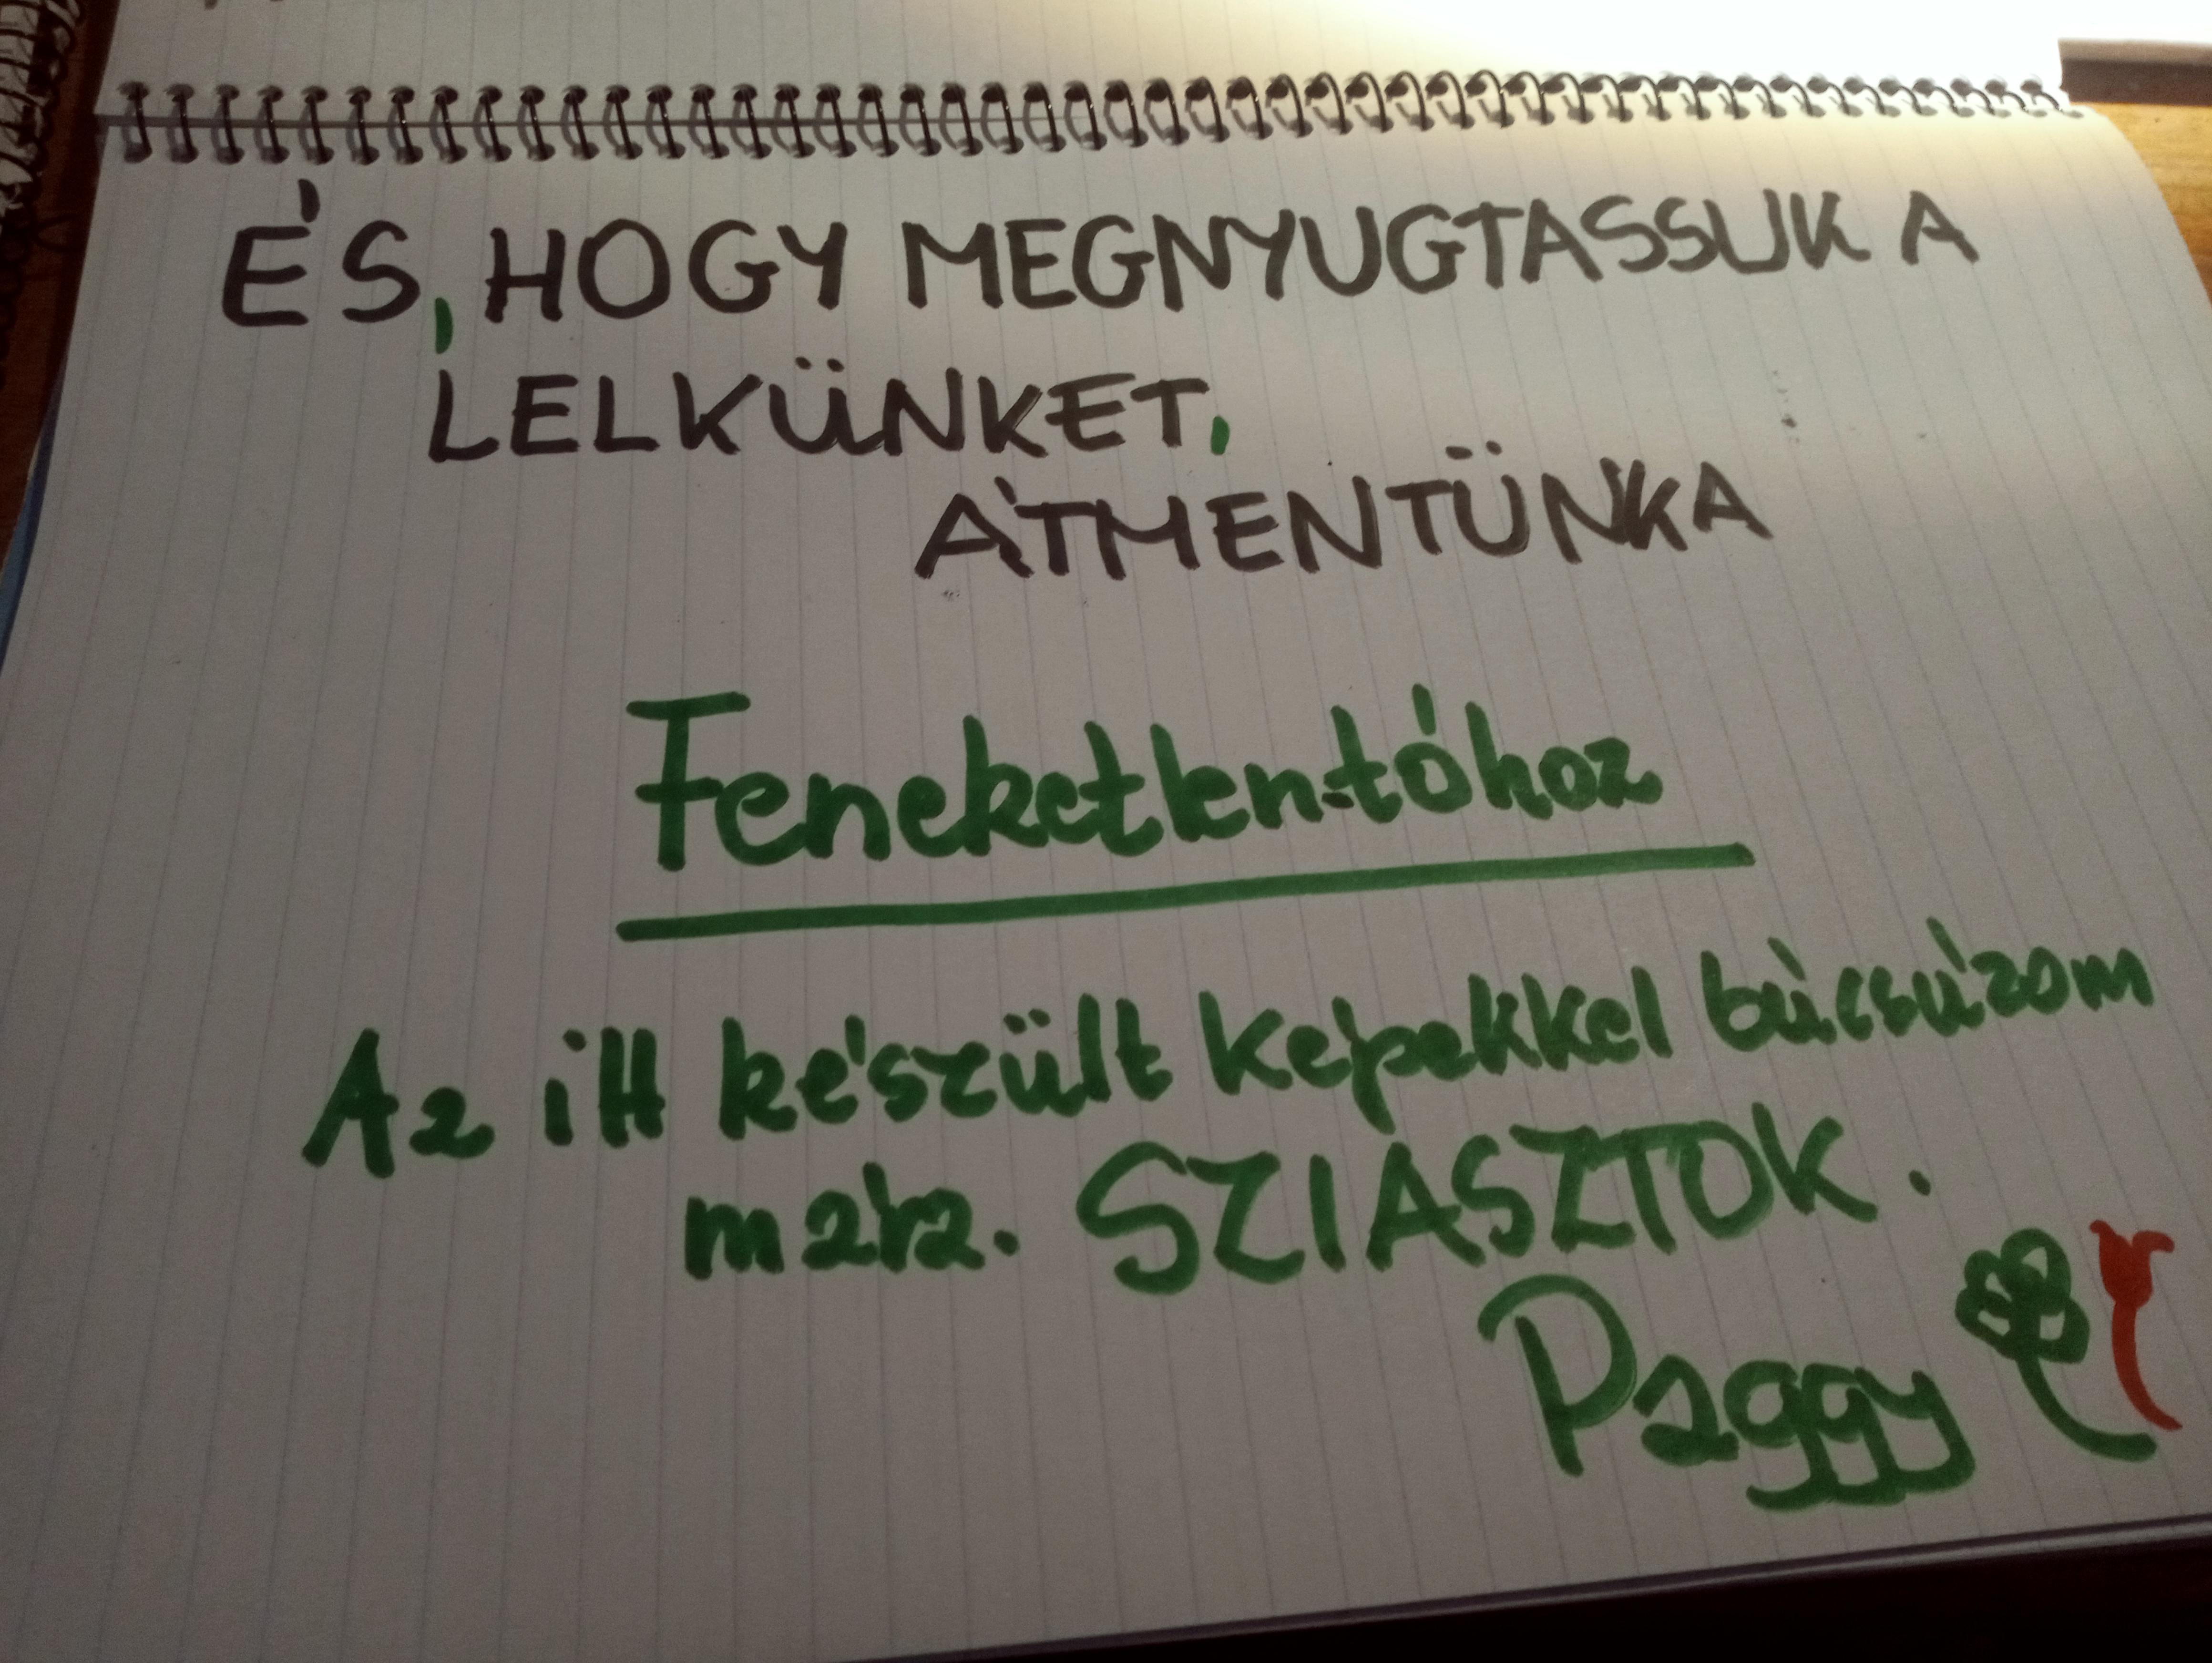 ÉS, HOGY MEGNYUGTASSUK A
LELKÜNKET,
ÁTMENTÜNK A
Feneketlen-tóhoz
Az itt készült képekkel búcsúzom
mára. SZIASZTOK.
Paggy